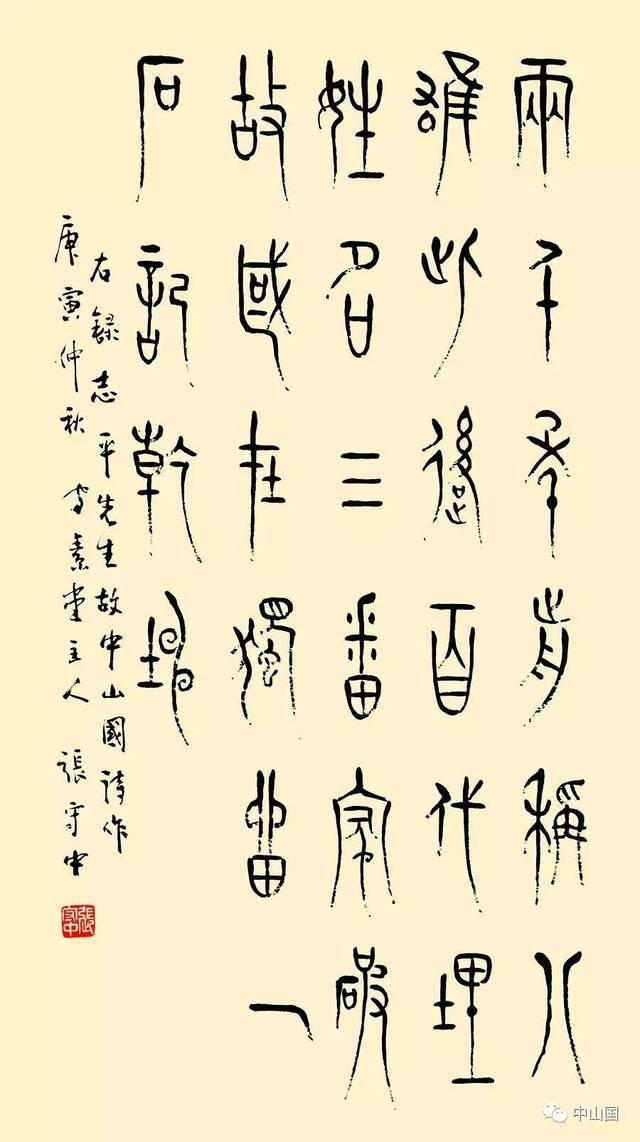 兩千年前稱八
雄此後百代埋
姓名三番家破
故國在獨留一
石記乾坤
右錄志平先生故中山國詩作
庚寅仲秋 守素堂主人 張守中
張守中
中山国